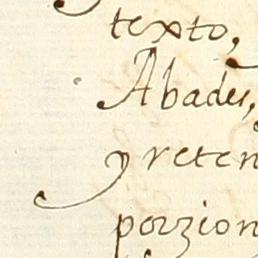 texto,
Abades,
y reten
porzion